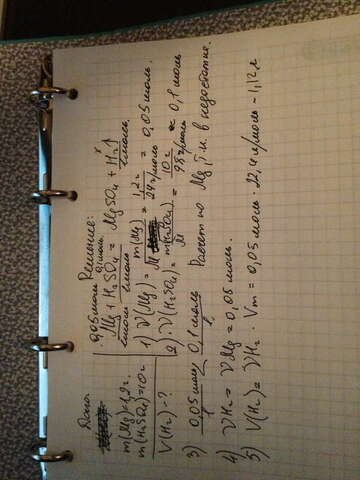 Дано:
m(Mg)=1,2г.
m(H₂SO₄)=10г
V(H₂)-?
Решение:
0,05моль 0,1моль x
Mg + H₂SO₄ = MgSO₄ + H₂↑
1моль 1моль 1моль.
1) ν(Mg) = m(Mg)/M = 1,2г/24г/моль = 0,05 моль.
2) ν(H₂SO₄) = m(H₂SO₄)/M = 10г/98г/моль ≈ 0,1 моль
3) 0,05моль/1 0,1 моль/1 Расчет по Mg, т.к. в недостатке.
4) νH₂ = νMg = 0,05 моль.
5) V(H₂) = νH₂ · Vm = 0,05 моль · 22,4 л/моль = 1,12 л